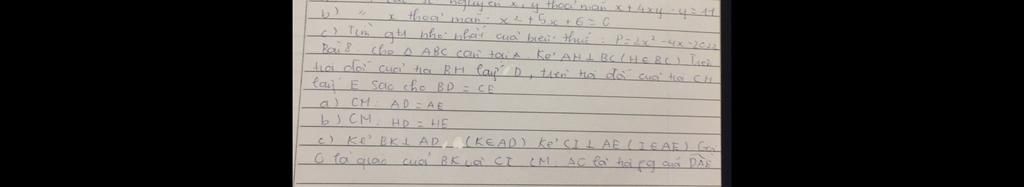 nguyên x, y thoả mãn x + 4xy - y = 11
b) " x thoả mãn: x² + 5x + 6 = 0
c) Tìm gtrị nhỏ nhất của biểu thức: P = 2x² - 4x - 2022
Bài 8 Cho Δ ABC cân tại A. Kẻ AH ⊥ BC (H ∈ BC) Trên
tia đối của tia BH lấy D, trên tia đối của tia CH
lấy E sao cho BD = CE
a) CM: AD = AE
b) CM: HD = HE
c) Kẻ BK ⊥ AD (K ∈ AD) Kẻ CI ⊥ AE (I ∈ AE) Gọi
là giao của BK và CI CM: là tia pg của DAE